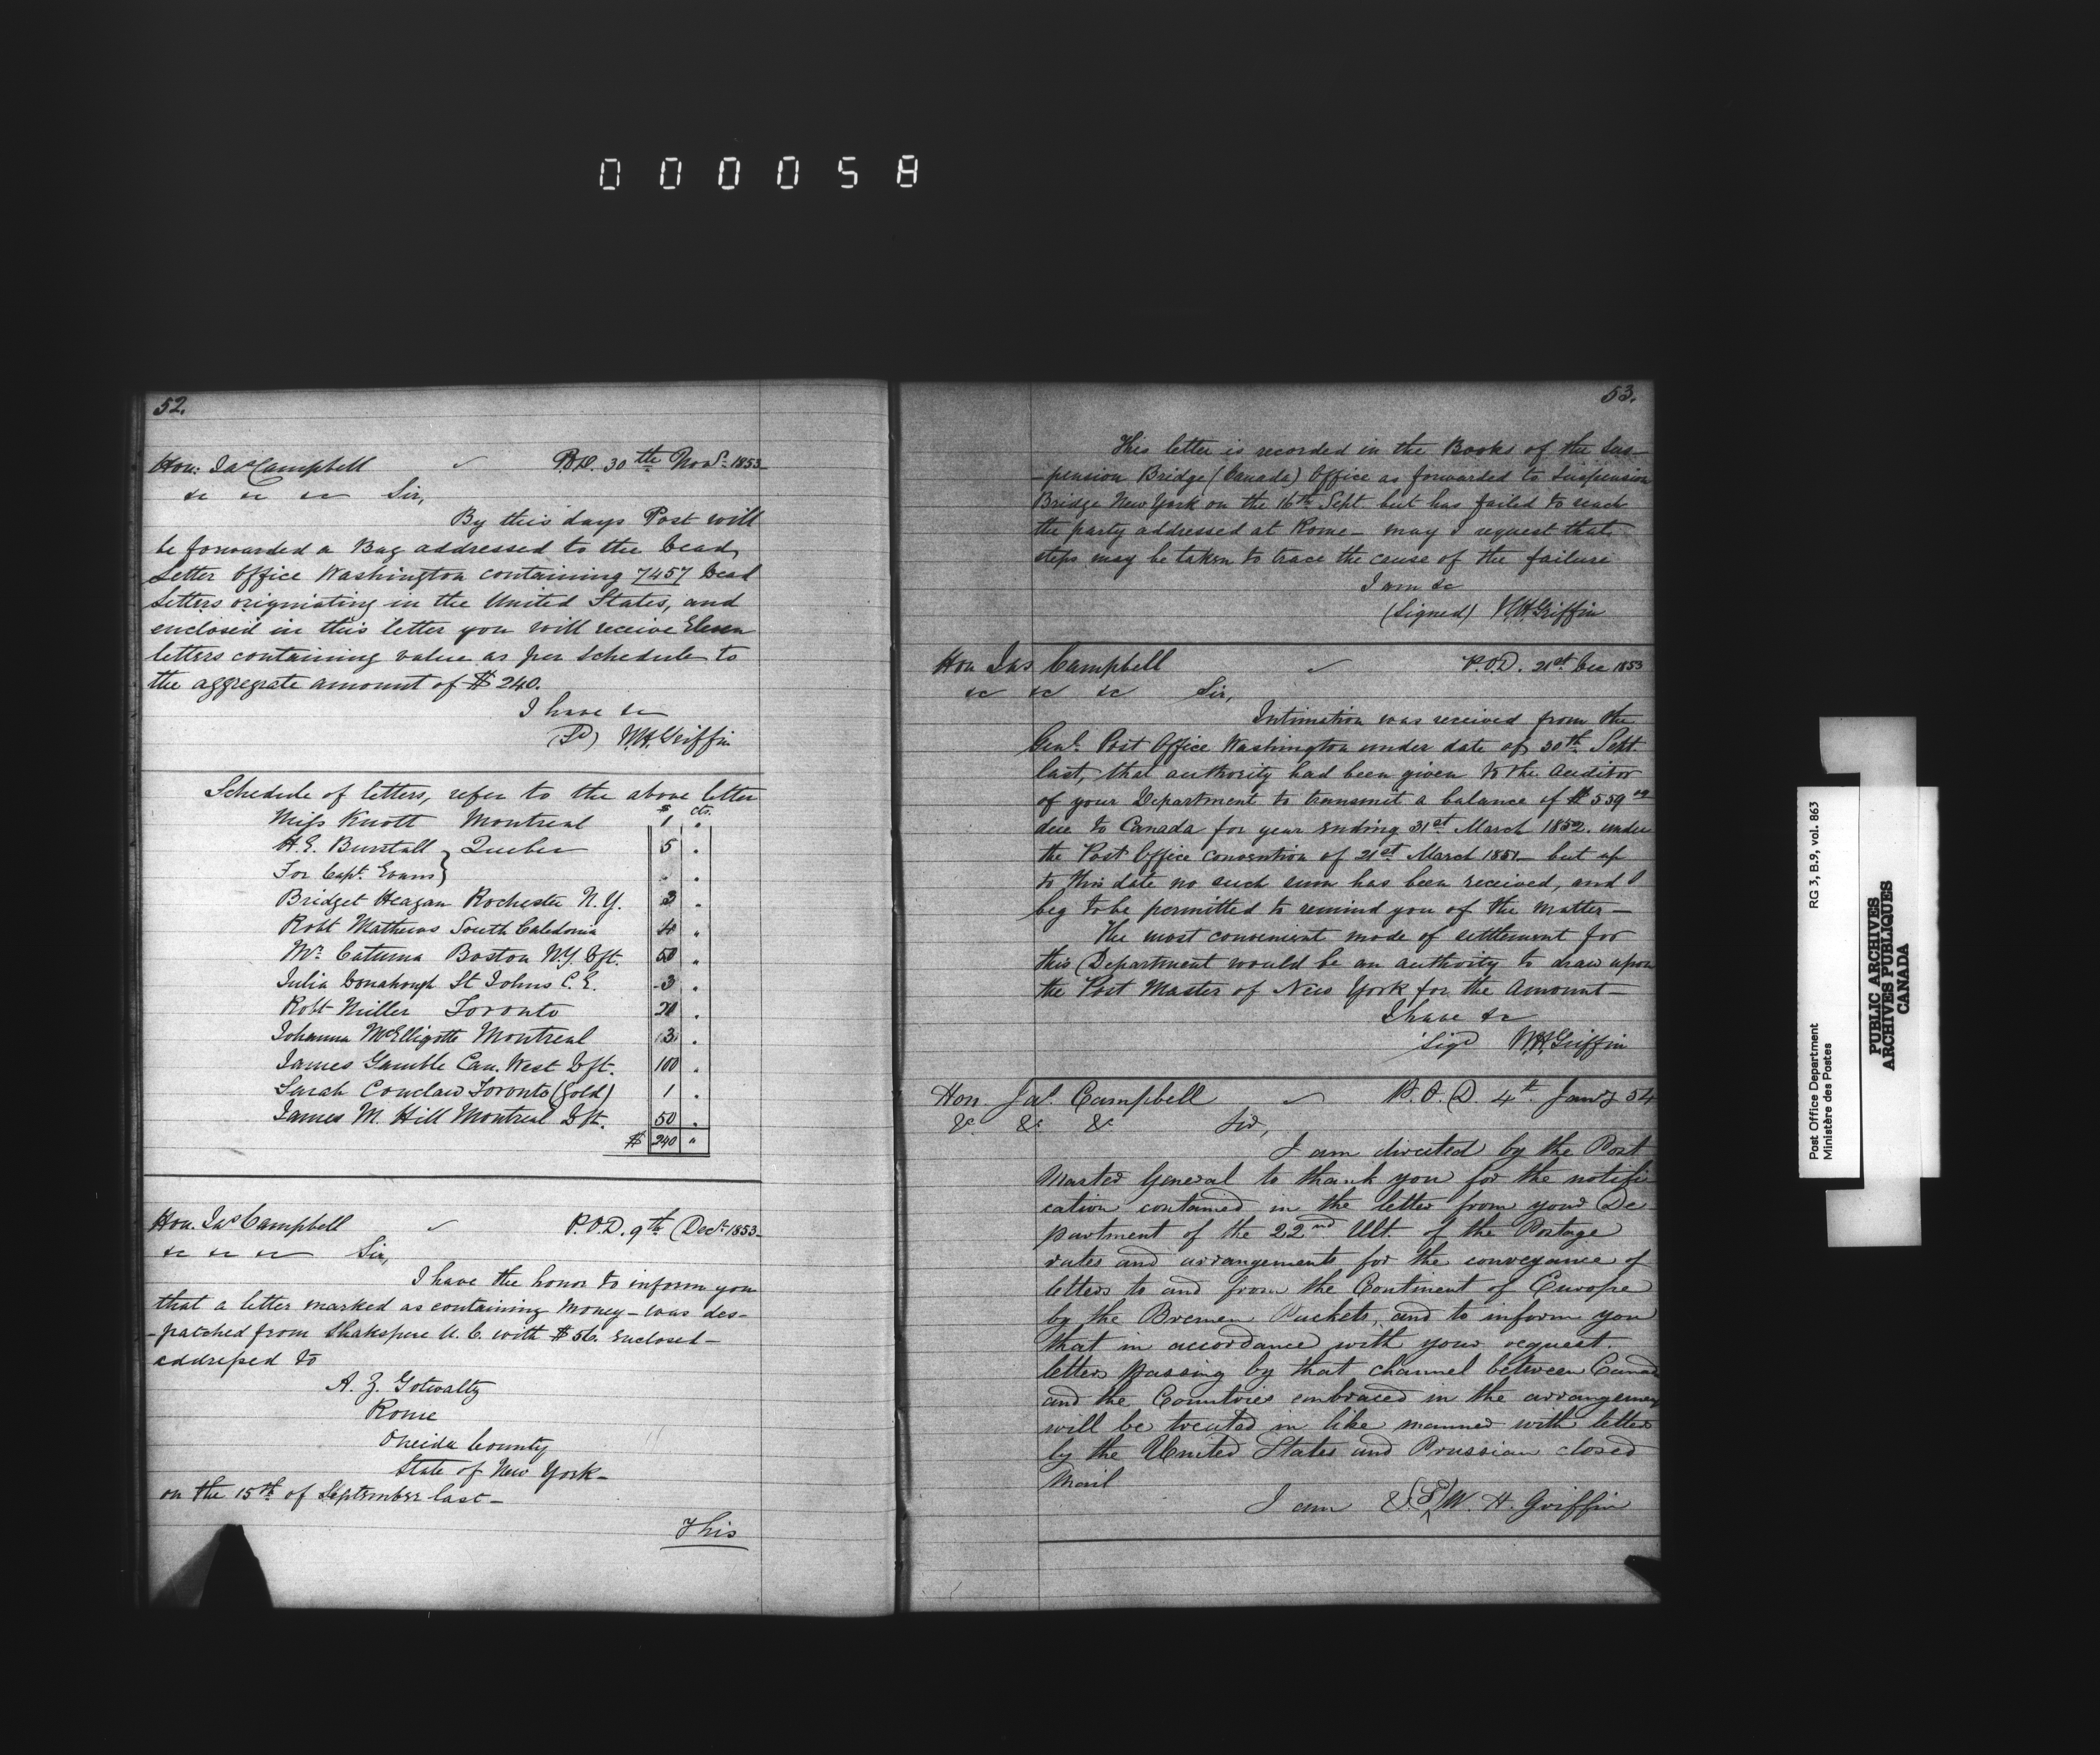 000058
52.
Hon: Jas Campbell P.O.D. 30th Novr. 1853
&c &c &c Sir,
By this days Post will
be forwarded a Bag addressed to the Dead
Letter Office Washington containing 7457 Dead
Letters originating in the United States, and
enclosed in this letter you will receive Eleven
letters containing value as per Schedule to
the aggregate amount of $240.
I have &c
(Sd) W.H. Griffin
Schedule of letters, refer to the above letter
$ cts.
Miss Knott Montreal 1 "
H.E. Burstall } Quebec 5 "
For Capt. Evans }
Bridget Heagan Rochester N.Y. 3 "
Robt Mathews South Caledonia 4 "
Mr. Boston N.Y. Dft. 50 "
Julia Donahough St Johns C.E. 3 "
Robt Miller Toronto 20 "
Johanna McElligotte Montreal 3 "
James Gamble Can. West Dft. 100 "
Sarah Conclaw Toronto (Gold) 1 "
James M. Hill Montreal Dft. 50 "
$ 240 "
Hon. Jas Campbell P.O.D. 9th Decr. 1853
&c &c &c Sir,
I have the honor to inform you
that a letter marked as containing Money – was des-
-patched from Shakspere U.C. with $56. Enclosed –
addressed to
A. Z. Gotwalty
Rome
Oneida County
State of New York –
on the 15th of September last –
This
53.
This letter is recorded in the Books of the Sus-
-pension Bridge (Canada) Office as forwarded to Suspension
Bridge New York on the 16th Sept. but has failed to reach
the party addressed at Rome – may I request that
steps may be taken to trace the cause of the failure
I am &c
(Signed) W.H. Griffin
Hon Jas Campbell P.O.D. 21st Dec 1853
&c &c &c Sir,
Intimation was received from the
Genl. Post Office Washington under date of 30th Sept
last, that authority had been given to the Auditor
of your Department to transmit a balance of $559
due to Canada for year ending 31st March 1852. under
the Post Office convention of 21st March 1851 – but up
to this date no such sum has been received, and I
beg to be permitted to remind you of the matter –
The most convenient mode of settlement for
this Department would be an authority to draw upon
the Post Master of New York for the Amount –
I have &c
Sigd W.H. Griffin
Hon. Jas. Campbell P.O.D. 4th Jany 54
&c &c &c Sir,
I am directed by the Post
Master General to thank you for the notifi
cation contained in the letter from your De
partment of the 22nd Ult. of the Postage
rates and arrangements for the conveyance of
letters to and from the Continent of Europe
by the Bremen Packets, and to inform you
that in accordance with your request.
letters passing by that channel between Canada
and the Countries embraced in the arrangement
will be treated in like manner with letters
by the United States and Prussian closed
Mail
I am &c (Sd) W. H. Griffin
Post Office Department RG 3, B.9, vol. 863
Ministère des Postes
PUBLIC ARCHIVES
ARCHIVES PUBLIQUES
CANADA